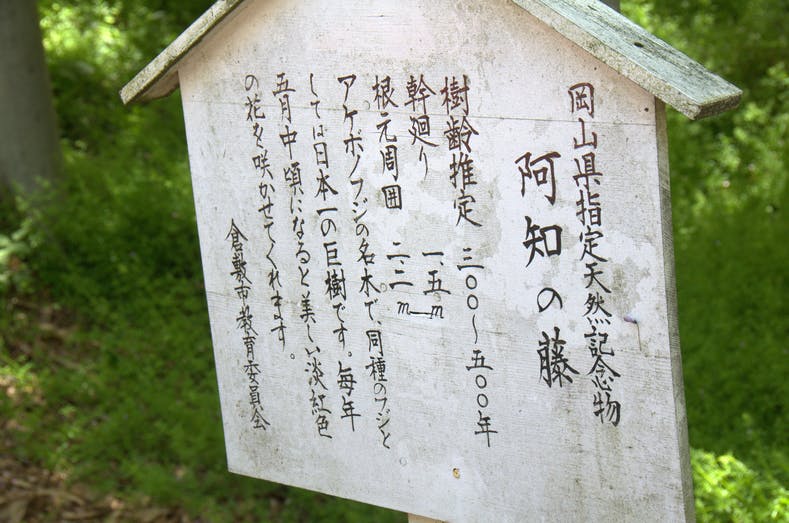 岡山県指定天然記念物
阿知の藤
樹齢推定 三〇〇～五〇〇年
幹廻り 一、五m
根元周囲 二、二m
アケボノフジの名木で、同種のフジと
しては日本一の巨樹です。毎年
五月中頃になると美しい淡紅色
の花を咲かせてくれます。
倉敷市教育委員会